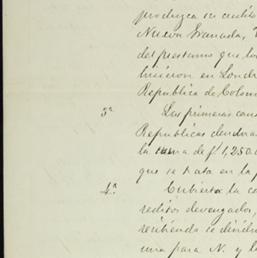 produzca su crédito
Nueva Granada,
del prestamo que los
hicieron en Londr
Republica de Colom
3ª Las primeras can
Republicas
la suma de £1,250.0
que se trata en la p
4ª Cubierta la ca
reditos devengados,
recibiendo se dividir
una para N. y la